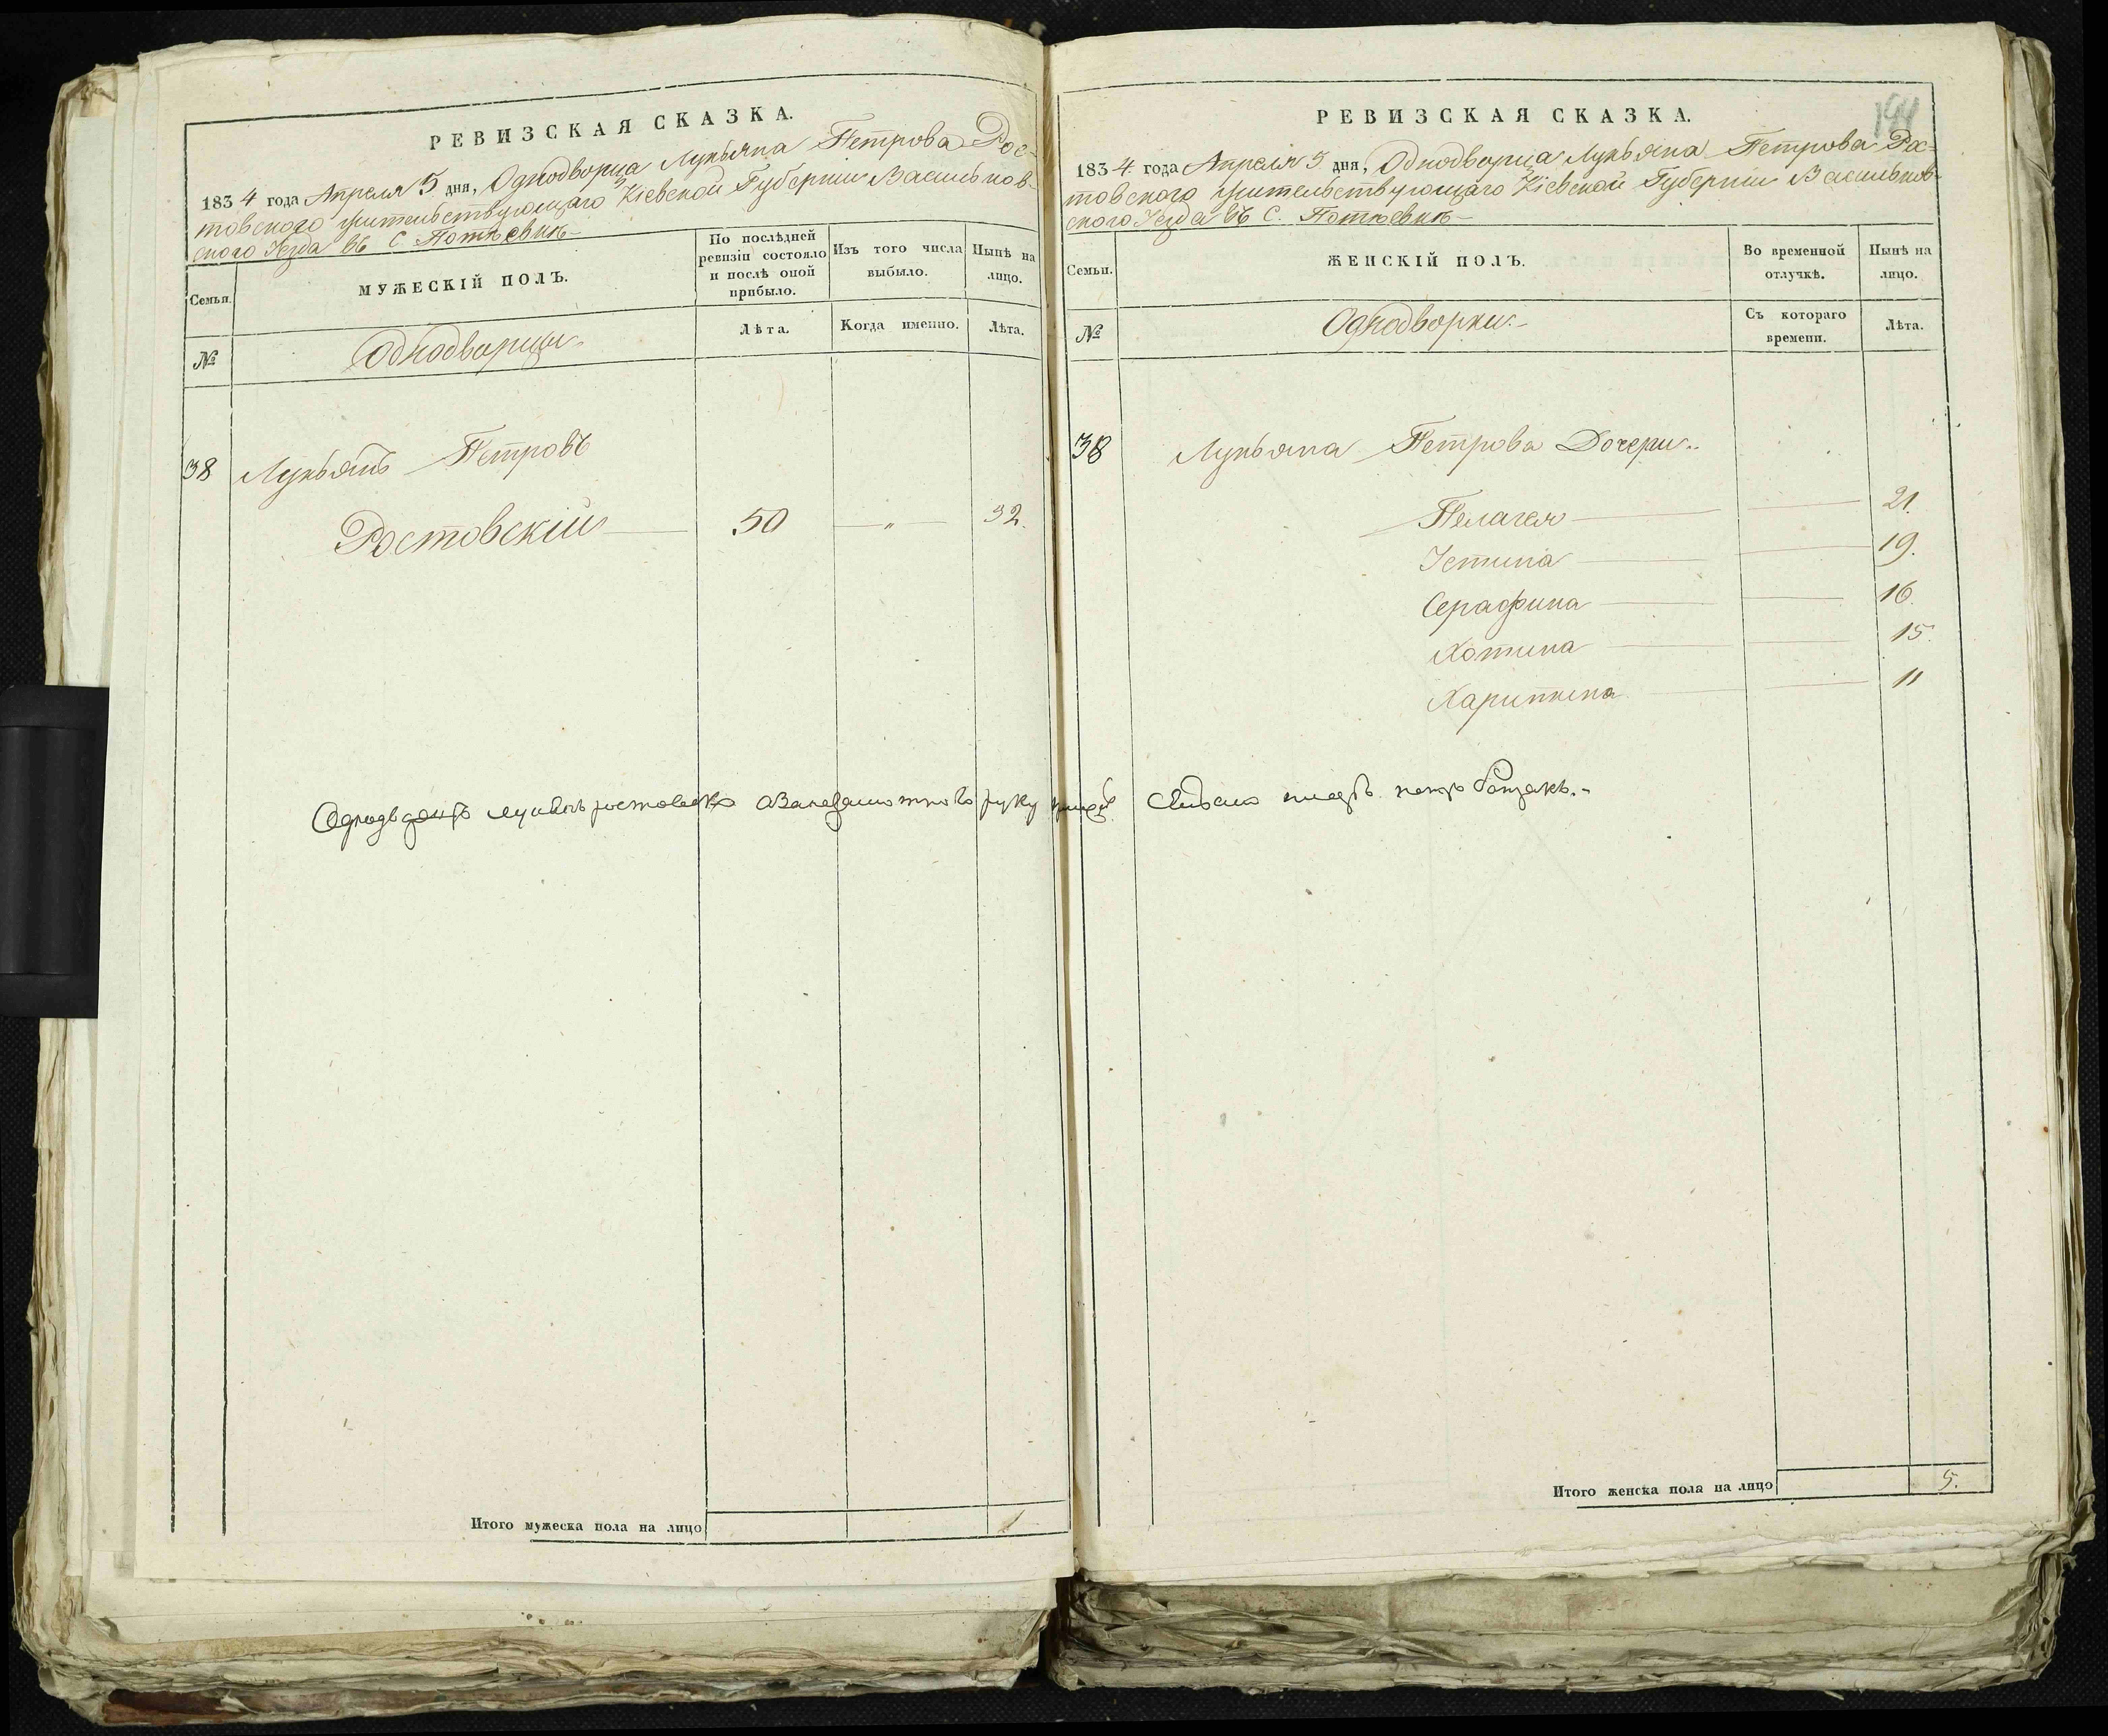 РЕВИЗСКАЯ СКАЗКА.
1834 года Апреля 5 дня, Однодворца Лукьяна Петрова Рос-
товского жительствующаго Кіевской Губерніи Васильков-
ского Уезда въ С.
Семьи.
МУЖЕСКІЙ ПОЛЪ.
По послѣдней ревизіи состояло и послѣ оной прибыло.
Изъ того числа выбыло.
Нынѣ на лицо.
№
Однодворцы
Лѣта.
Когда именно.
Лѣта.
38 Лукьянъ Петровъ
Ростовскій 50 „ 32.
лукянъ руку
Итого мужеска пола на лицо 1
194
РЕВИЗСКАЯ СКАЗКА.
1834 года Апреля 5 дня, Однодворца Лукьяна Петрова Рос-
товского жительствующаго Кіевской Губерніи Васильков-
ского Уезда въ С.
Семьи.
ЖЕНСКІЙ ПОЛЪ.
Во временной отлучкѣ.
Нынѣ на лицо.
№
Однодворки.
Съ котораго времени.
Лѣта.
38 Лукьяна Петрова Дочери
Пелагея 21.
Устина 19.
Серафина 16.
Хотина 15.
Харитина 11
Итого женска пола на лицо 5.